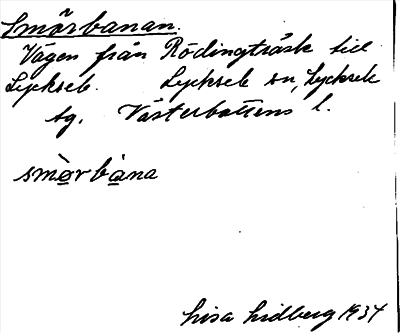 Smörbanan.
Vägen från Rödingträsk till
Lycksele. Lycksele sn, Lycksele
tg. Västerbottens l.
smò̱rbà̱na
Lisa Lidberg 1934